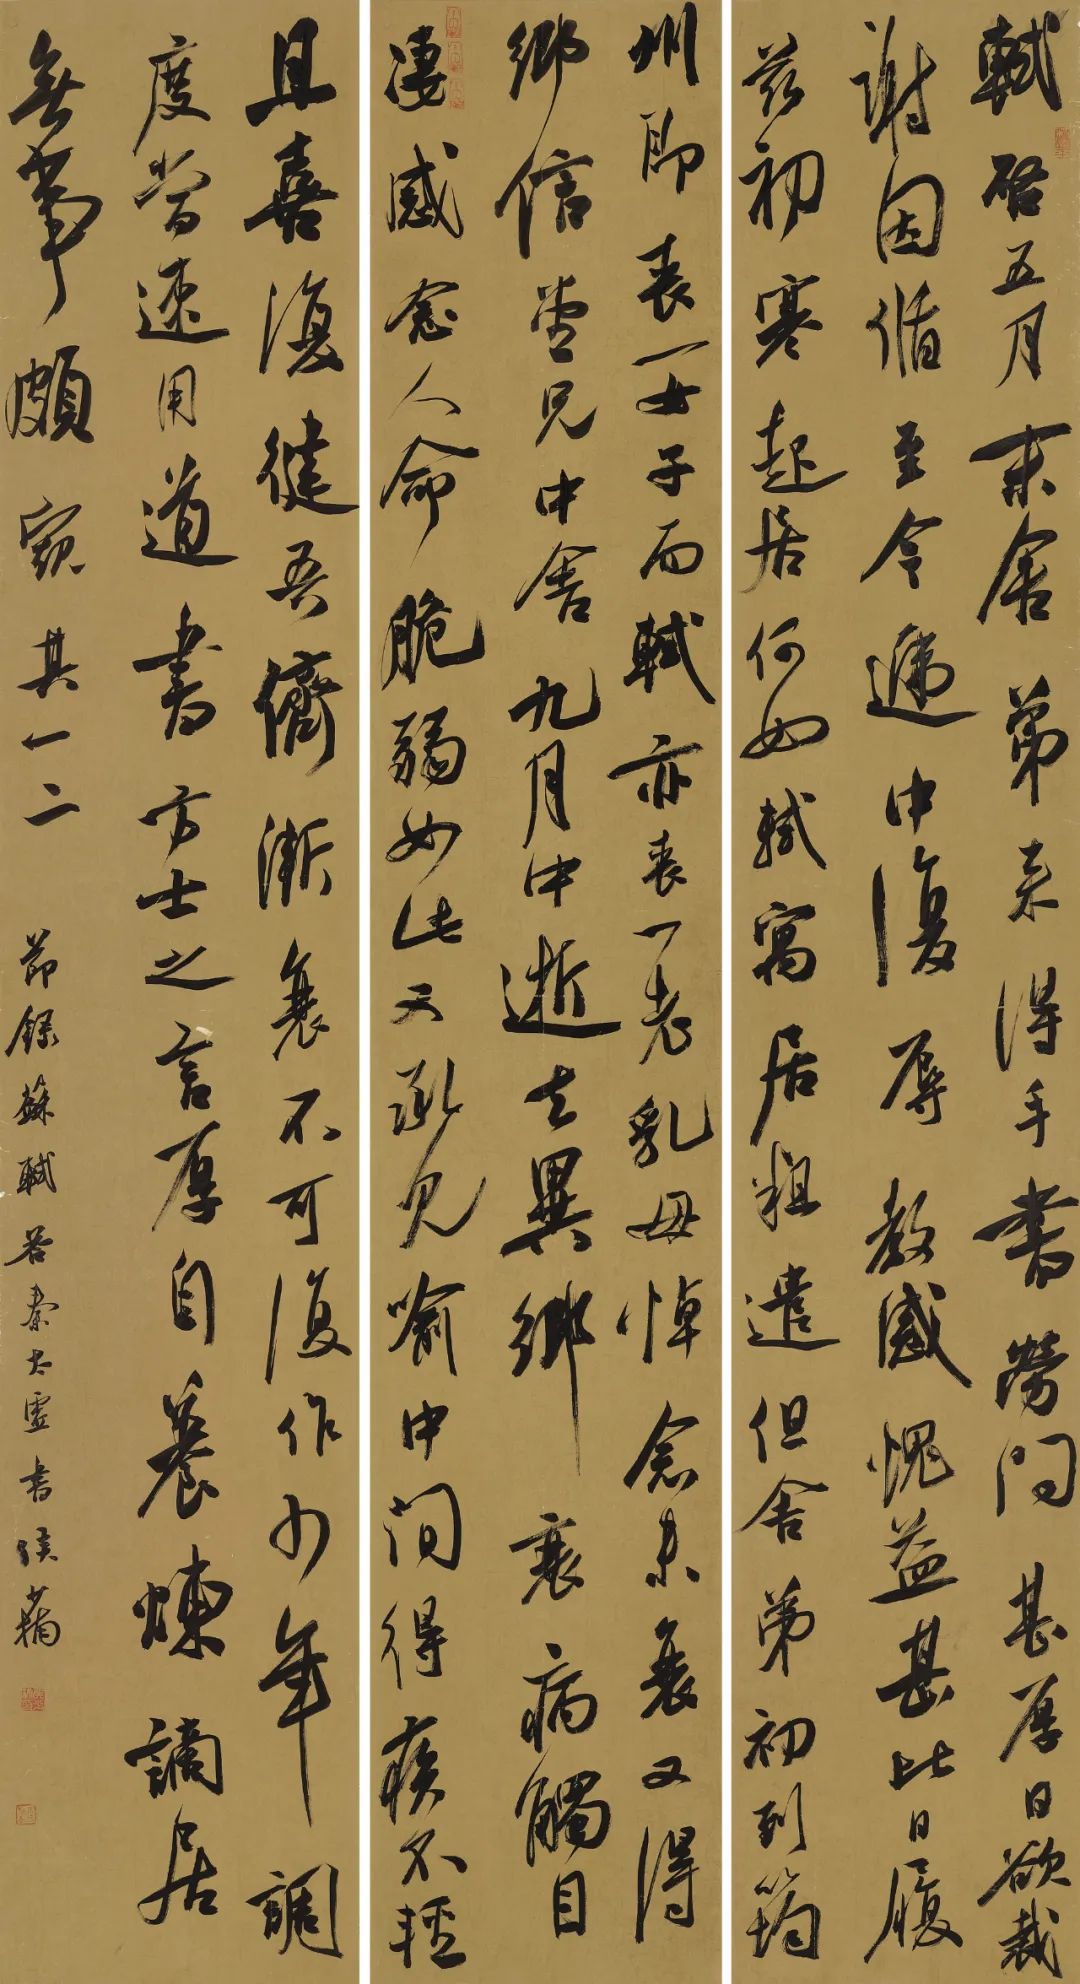 軾啓五月末舍弟來得手書勞問甚厚日欲裁
謝因循至今遞中復辱教感愧益甚比日履
茲初寒起居何如軾寓居粗遣但舍弟初到筠
州即喪一女子而軾亦喪一老乳母悼念未衰又得
鄉信堂兄中舍九月中逝去異鄉衰病觸目
淒感念人命脆弱如此又承見喻中間得疾不輕
且喜復健吾儕漸衰不可復作少年調
度當速用道書方士之言厚自養煉謫居
無事頗窺其一二
節錄蘇軾答秦太虛書侯